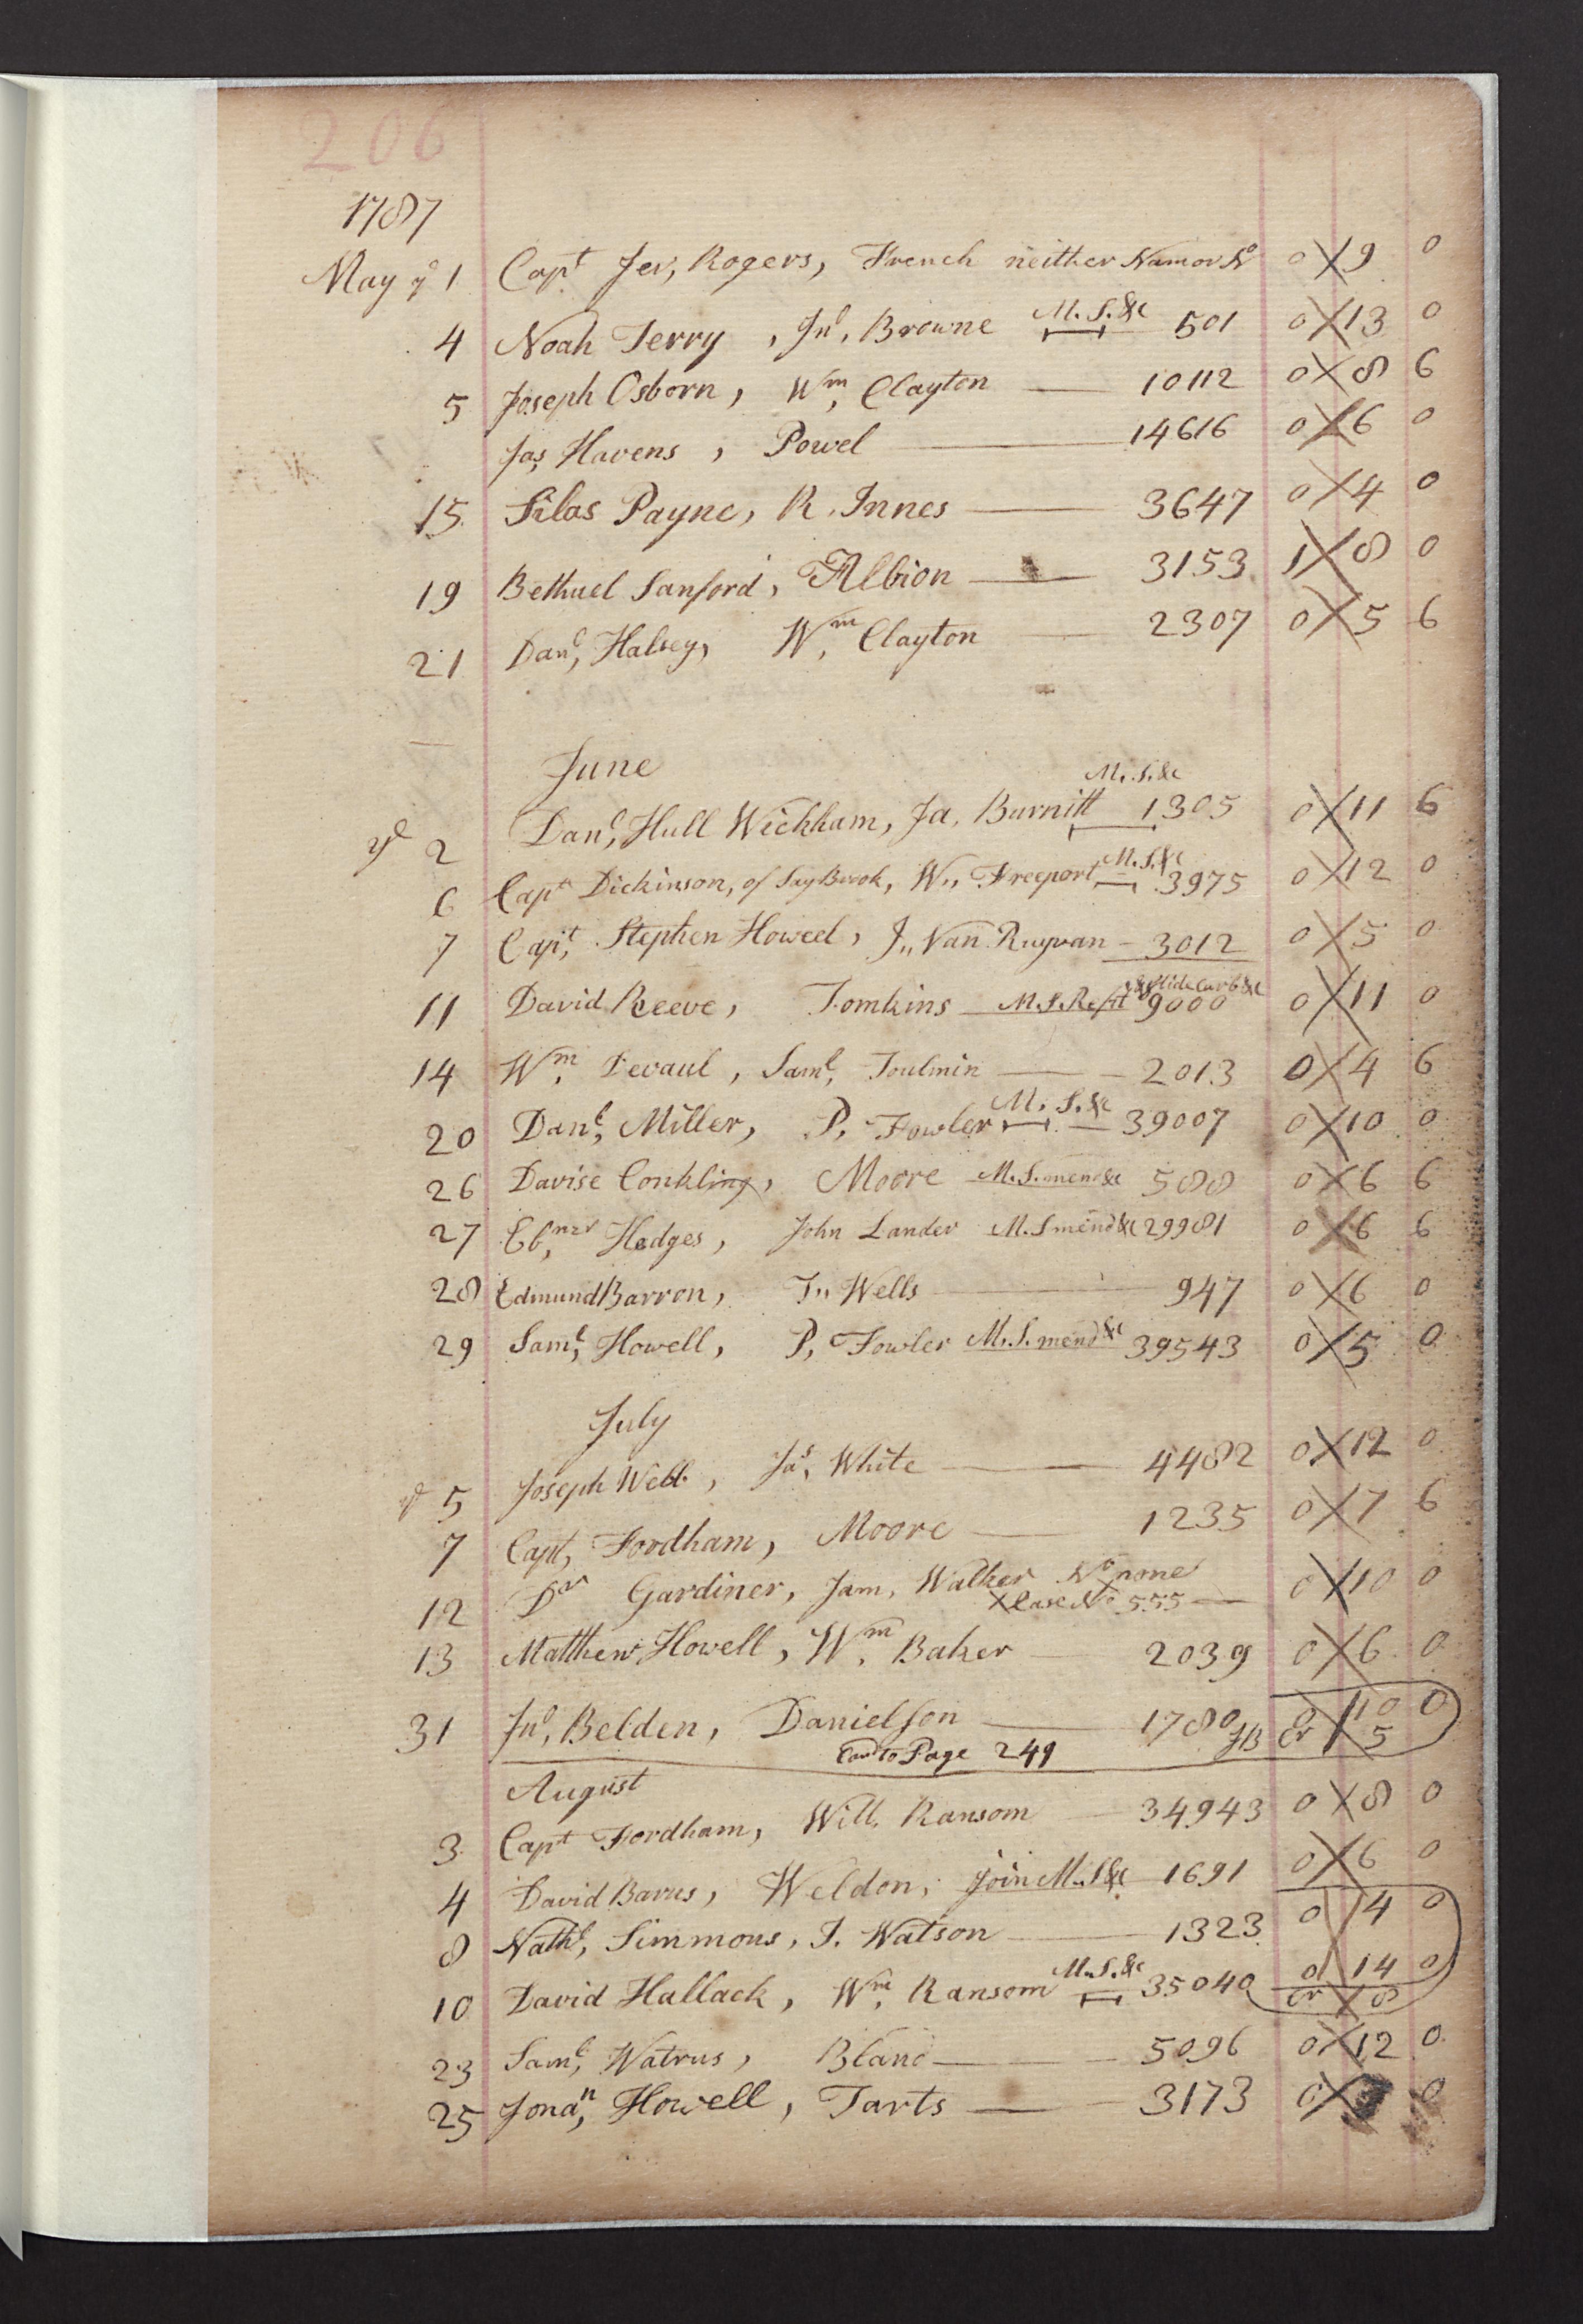 206
1787
May ye 1 Capt Jer, Rogers, French neither Nam or No 0 9 0
4 Noah Terry, Jno, Browne M. S. &c 501 0 13 0
5 Joseph Osborn, Wm, Clayton 10112 0 8 6
Jas, Havens, Powel 14616 0 6 0
15 Silas Payne, R. Innes 3647 0 4 0
19 Bethuel Sanford, Albion 3153 1 8 0
21 Danl, Halsey, Wm, Clayton 2307 0 5 6
June
ye 2 Danl, Hull Wickham, Ja, Burnitt M. S. &c 1305 0 11 6
6 Capt Dickinson, of SayBrook, W,, Freeport M. S. &c 3975 0 12 0
7 Capt, Stephen Howeel, J,, Van Ruyvan 3012 0 5 0
11 David Reeve, Tomkins M. S. 9000 0 11 0
14 Wm, Devaul, Saml, Toulmin 2013 0 4 6
20 Danl, Miller, P, Fowler M. S. &c 39007 0 10 0
26 Davise Conkling, Moore M. S. mend &c 588 0 6 6
27 Ebnzr, Hedges, John Lander M. S mend &c 29981 0 6 6
28 Edmund Barron, J,, Wells 947 0 6 0
29 Saml, Howell, P, Fowler M. S. mend &c 39543 0 5 0
July
ye 5 Joseph Webb, Jas, White 4482 0 12 0
7 Capt, Fordham, Moore 1235 0 7 6
12 Dr Gardiner, Jam, Walker No none 0 10 0
X Case No 555
13 Matthew Howell, Wm, Baker 2039 0 6 0
31 Jno, Belden, Danielson 1780 0 10 0
JB Cr 5
Card to Page 249
August
3 Capt Fordham, Will, Ransom 34943 0 8 0
4 David Barns, Weldon, join M. S &c 1691 0 6 0
8 Nathl, Simmons, J. Watson 1323 0 4 0
10 David Hallack, Wm, Ransom M. S. &c 35040 0 14 0
Cr 8
23 Saml, Watrus, Bland 5096 0 12 0
25 Jonan, Howell, Tarts 3173 0 0